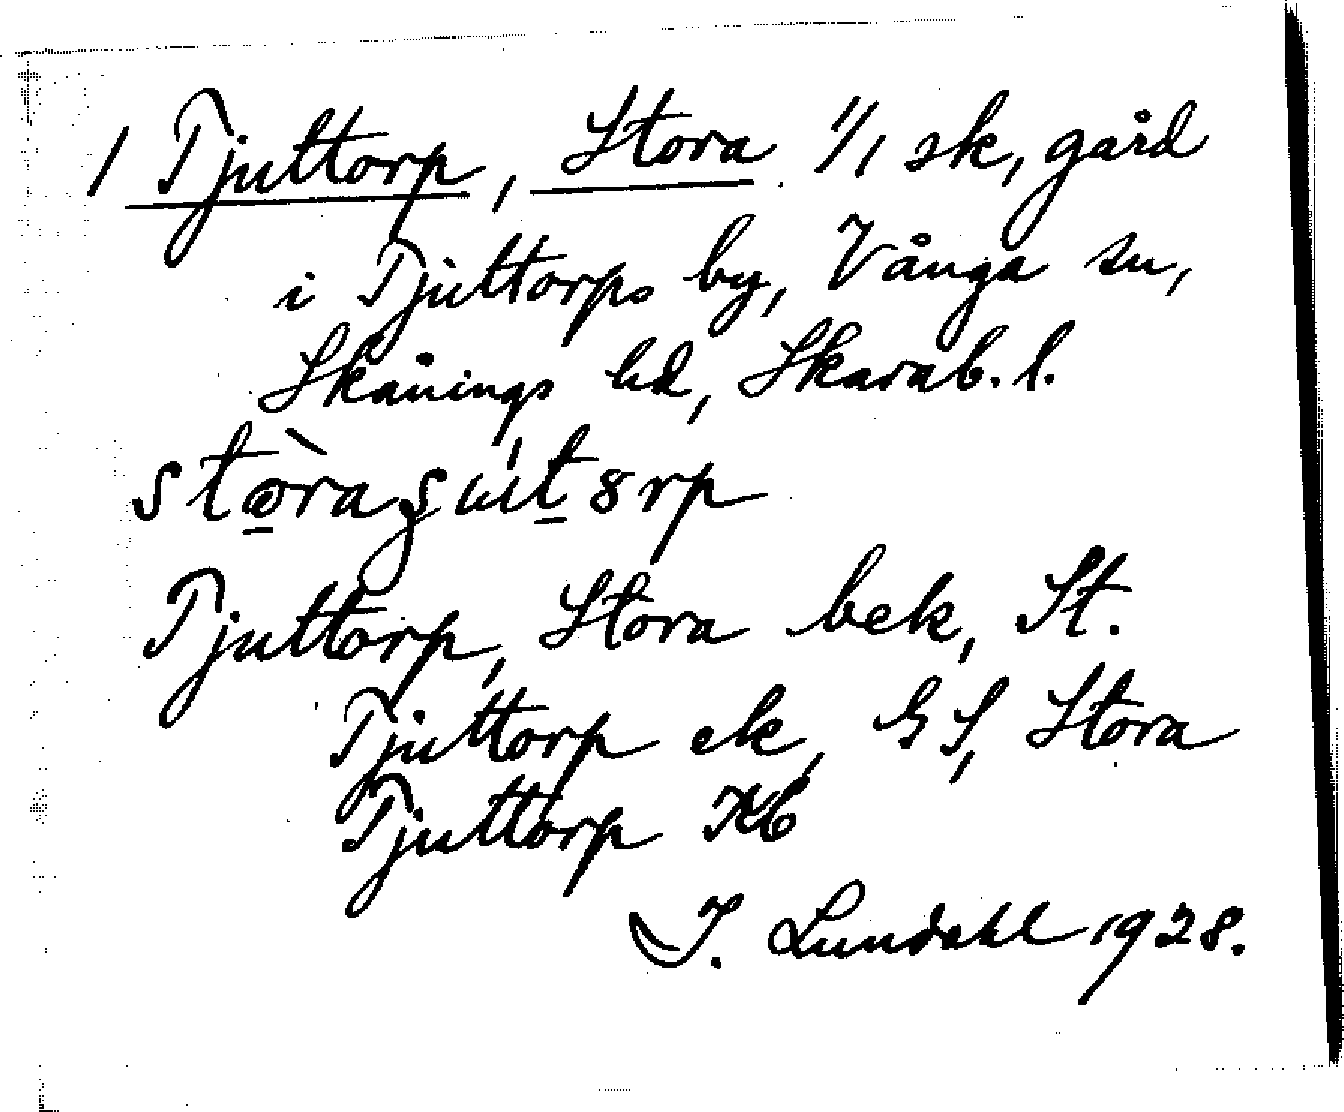 1 Tjuttorp, Stora 1/1 sk, gård
i Tjuttorps by, Vånga sn,
Skånings hd, Skarab. l.
Tjuttorp, Stora bek, St.
Tjuttorp ek, GS, Stora
Tjuttorp KB
I. Lundahl 1928.